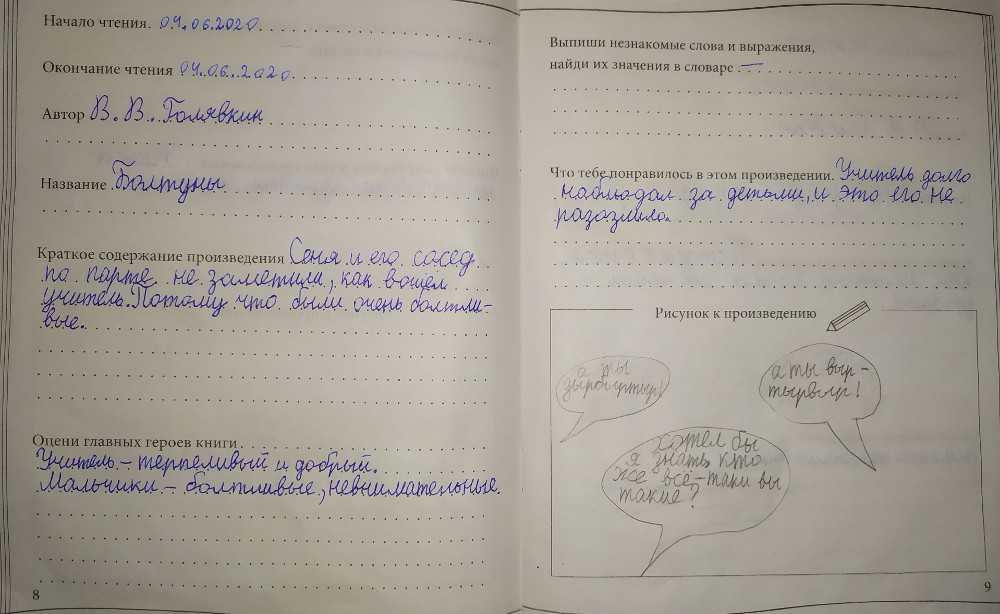 Начало чтения. 04.06.2020
Окончание чтения 04.06.2020
Автор В. В. Голявкин
Название Болтуны
Краткое содержание произведения Сеня и его сосед
по парте не заметили, как вошёл
учитель. Потому что были очень болтли-
вые.
Оцени главных героев книги
Учитель - терпеливый и добрый.
Мальчики - болтливые, невнимательные.
8
Выпиши незнакомые слова и выражения,
найди их значения в словаре —
Что тебе понравилось в этом произведении. Учитель долго
наблюдал за детьми, и это его не
разозлило.
Рисунок к произведению
а ты
а ты выр-
тырвыр!
хотел бы
я знать кто
же всё-таки вы
такие?
9